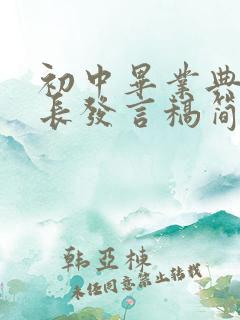 初中畢業典
長發言稿簡
韩亚栋
未经同意禁止转载